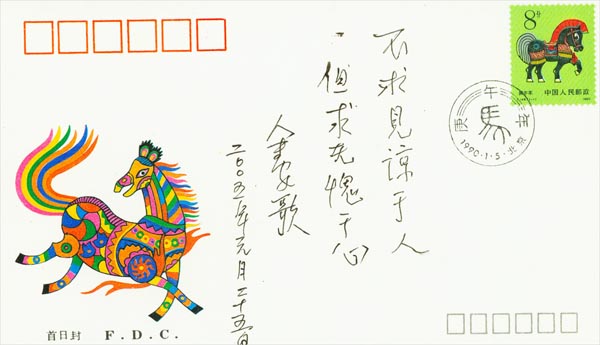 8分
庚午年
中国人民邮政
1990
庚午年
馬
1990·1·5·北京
不求見諒于人
但求无愧于心
二〇〇五年元月二十五日
首日封 F.D.C.